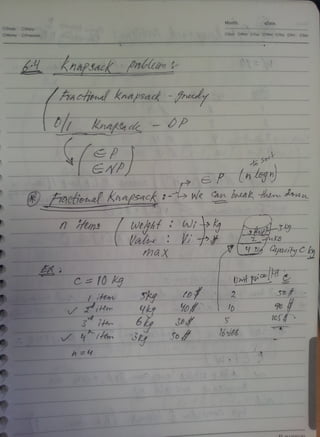 6.4 Knapsack problem :-
Fractional Knapsack - greedy
0/1 Knapsack - DP
∈ P
∈ NP
to sort
∈ P (n logn)
* Fractional Knapsack : → We can break them down
n items ( Weight : Wi → kg
Value : Vi → $
max
Capacity C kg
Ex.
C = 10 kg
Unit price/kg
1 item 5kg 10$ 2
✓ 2nd item 4kg 40$ 10
3rd item 6kg 30$ 5
✓ 4th item 3kg 50$
n = 4